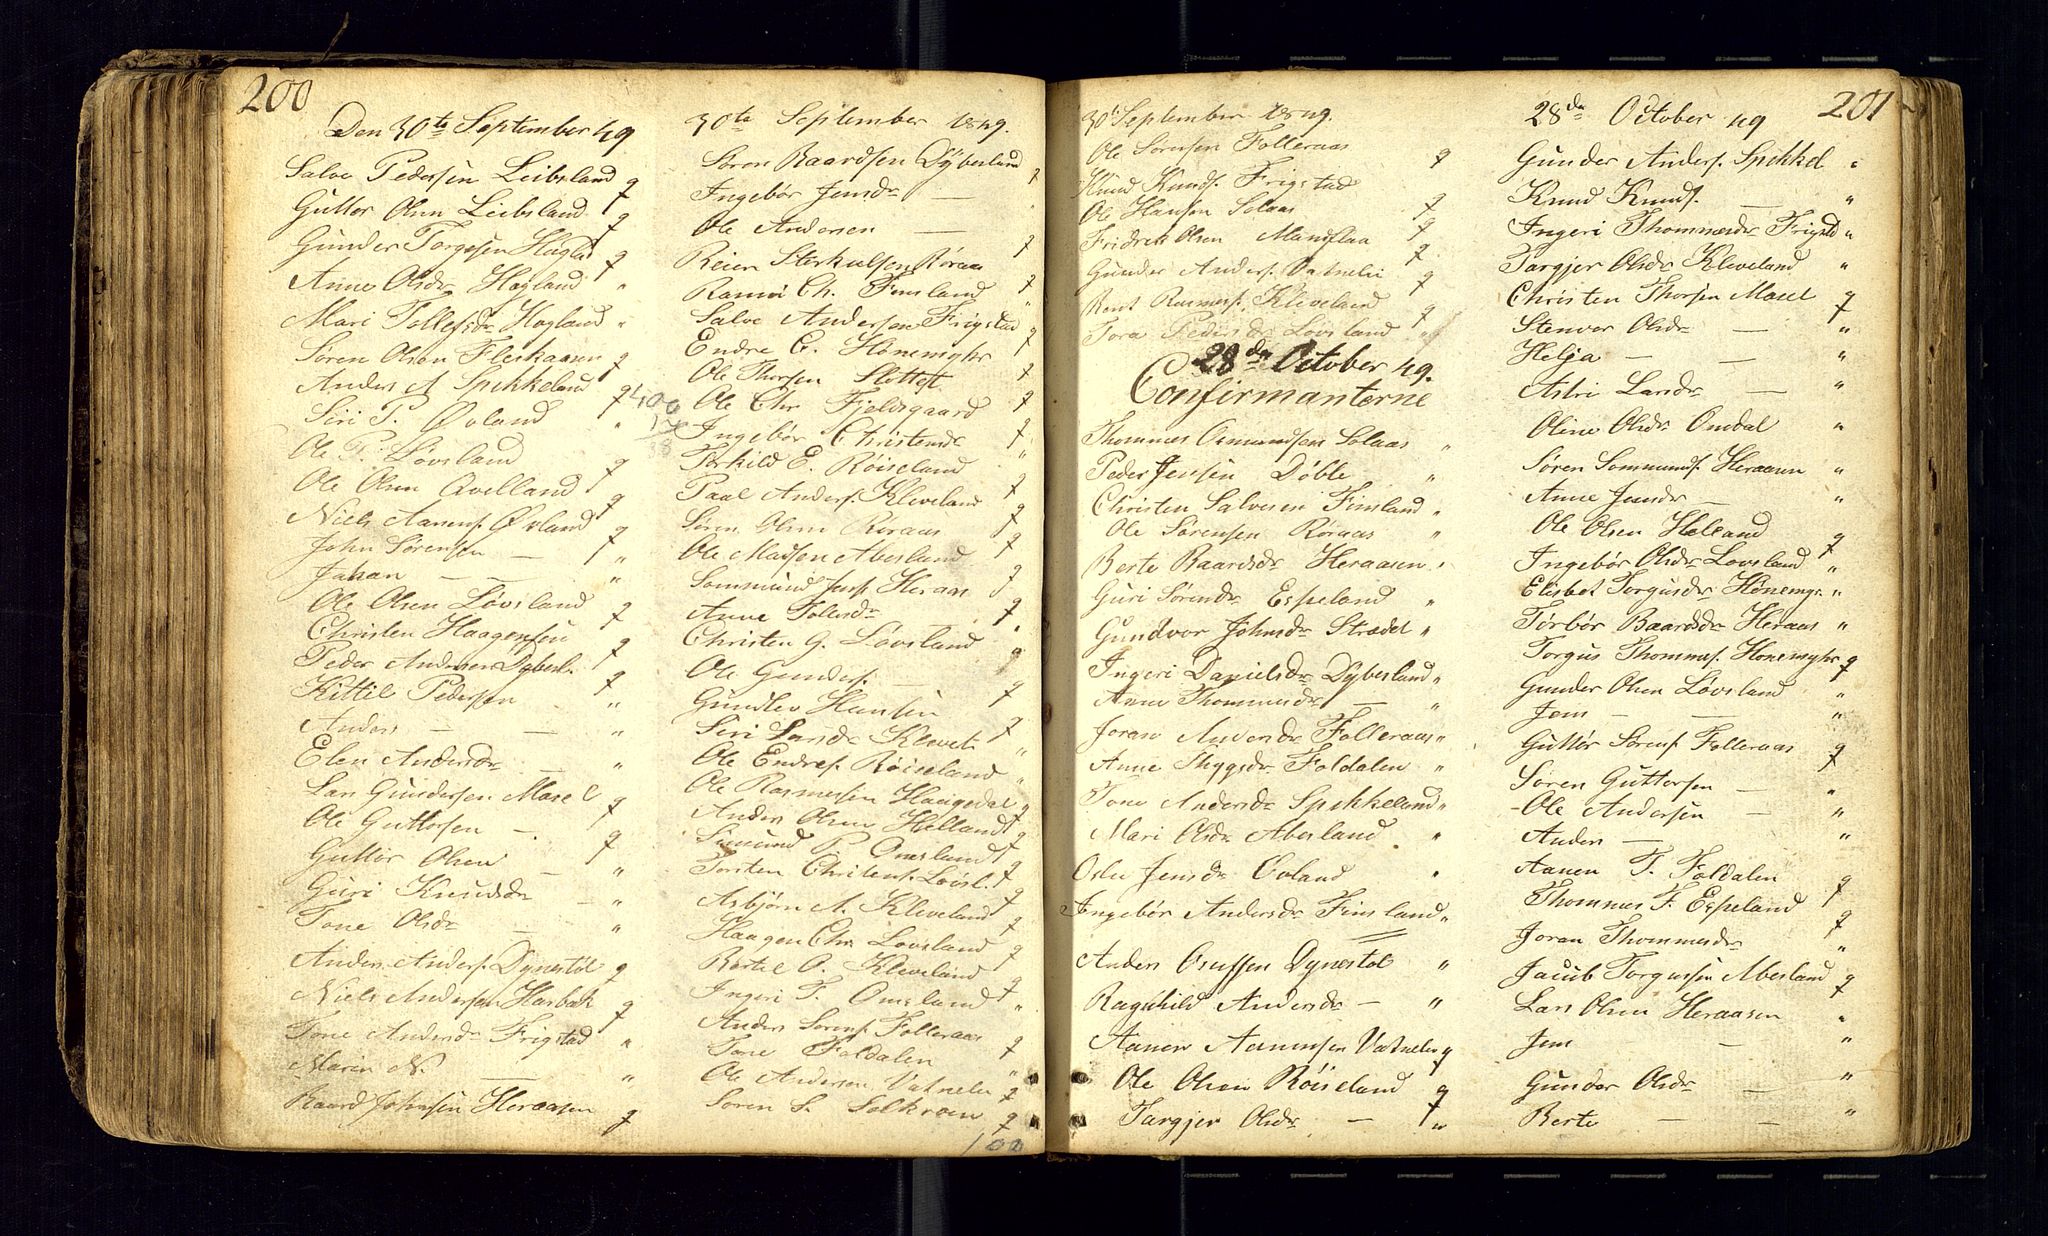 200
Den 30te September 49
Salve Pedersen Leibsland g
Guttor Olsen Leibsland g
Gunder Torgesen Hagland g
Anne Olsdr Hagland "
Mari Tollefsdr Hagland "
Søren Olsen Fleskaasen g
Anders A Spikkeland g
Siri T. Øvland "
Ole T. Løvsland g
Ole Olsen Qvelland g
Niels Aanens. Øvland g
John Sørensen — "
Johan — — "
Ole Olsen Løvsland g
Christen Haagensen g
Peder Andersen Dybesl. g
Kittil Pedersen "
Anders — — "
Elen Andersdr — "
Lars Gundersen Masel g
Ole Guttorsen — g
Guttor Olsen "
Guri Knudsdr — "
Tone Olsdr — "
Anders Anders. Dynestøl g
Niels Andersen Harbak g
Tone Andersdr Frigstad "
Maren N. — "
Baard Johnsen Heraasen g
30te September 1849.
Søren Baardsen Dÿbesland g
Ingebør Jensdr — "
Ole Andersen — g
Reier Sterkulsen Røraas g
Ramvi Ch. Finsland "
Salve Andersen Frigstad g
Endre G. Hønemyhr g
Ole Thorsen Slottet g
Ole Chr Fjeldsgaard g
Ingebør Christensdr "
Torkild E. Røiseland g
Paal Anders. Kleveland g
Søren Olsen Røraas g
Ole Madsen Abesland g
Sommund Jens. Heraas g
Anne Tollesdr — "
Christen G. Løvsland g
Ole Gunders. — g
Gundlev Hansen g
Siri Larsdr Klevel. "
Ole Endres. Røiseland "
Ole Rasmesen Haugsdal g
Anders Olsen Helland g
Simund P. Omsland g
Torsten Christens. Løvsl. g
Asbjørn A. Kleveland g
Haagen Chr Løvsland g
Bertel O. Kleveland g
Ingeri T. Omsland "
Anders Sørens. Folleraas g
Tone Foldalen "
Ole Andersen Vatnelie g
Søren S. Solkroen g
100
30t September 1849.
Ole Sørensen Folleraas g
Knud Knuds. Frigstad
Ole Hansen Solaas g
Fridrek Olsen Mandflaa g
Gunder Anders. Vatnelie g
Bent Rasmes. Kleveland g
Tora Pedersdr Løvsland "
28de October 49.
Confirmanterne
Thommes Osmundsen Solaas "
Peder Jensen Døble "
Christen Salvesen Finsland "
Ole Sørensen Røraas "
Berte Baardsdr Heraasen "
Guri Sørensdr Espeland "
Gundvor Johnsdr Strædet "
Ingeri Danielsdr Dÿbesland "
Anne Thommesdr — "
Joran Andersdr Folleraas "
Anne Thygesdr Foldalen "
Tone Andersdr Spikkeland "
Mari Olsdr Abesland "
Oslu Jensdr Øvland "
Ingebør Andersdr Finsland "
Anders Osufsen Dynestøl "
Ragnhild Andersdr — "
Aanen Aanensen Vatnelie g
Ole Olsen Røiseland g
Targjer Olsdr — "
201
28de October 49
Gunder Anders. Spikkel "
Knud Knuds. — "
Ingeri Thommesdr Frigstd "
Targjer Olsdr Kleveland "
Christen Thorsen Masel g
Stenvor Olsdr — "
Helja — — "
Astri Larsdr — "
Oline Olsdr Omdal "
Søren Sommunds. Heraasen "
Anne Jensdr — "
Ole Olsen Helland g
Ingebør Olsdr Løvsland "
Elisbet Torgusdr Hønemy. "
Torbør Baardsdr Heraas "
Torgus Thommes. Hønemyhr g
Gunder Olsen Løvsland "
Jens — — "
Guttor Sørens. Folleraas g
Søren Guttorsen — "
Ole Andersen — "
Anders — "
Aanen T. Foldalen g
Thommes T. Espeland g
Joran Thommesdr "
Jacub Torgussen Abesland g
Lars Olsen Heraasen "
Jens "
Gundor Olsdr — "
Berte — — "